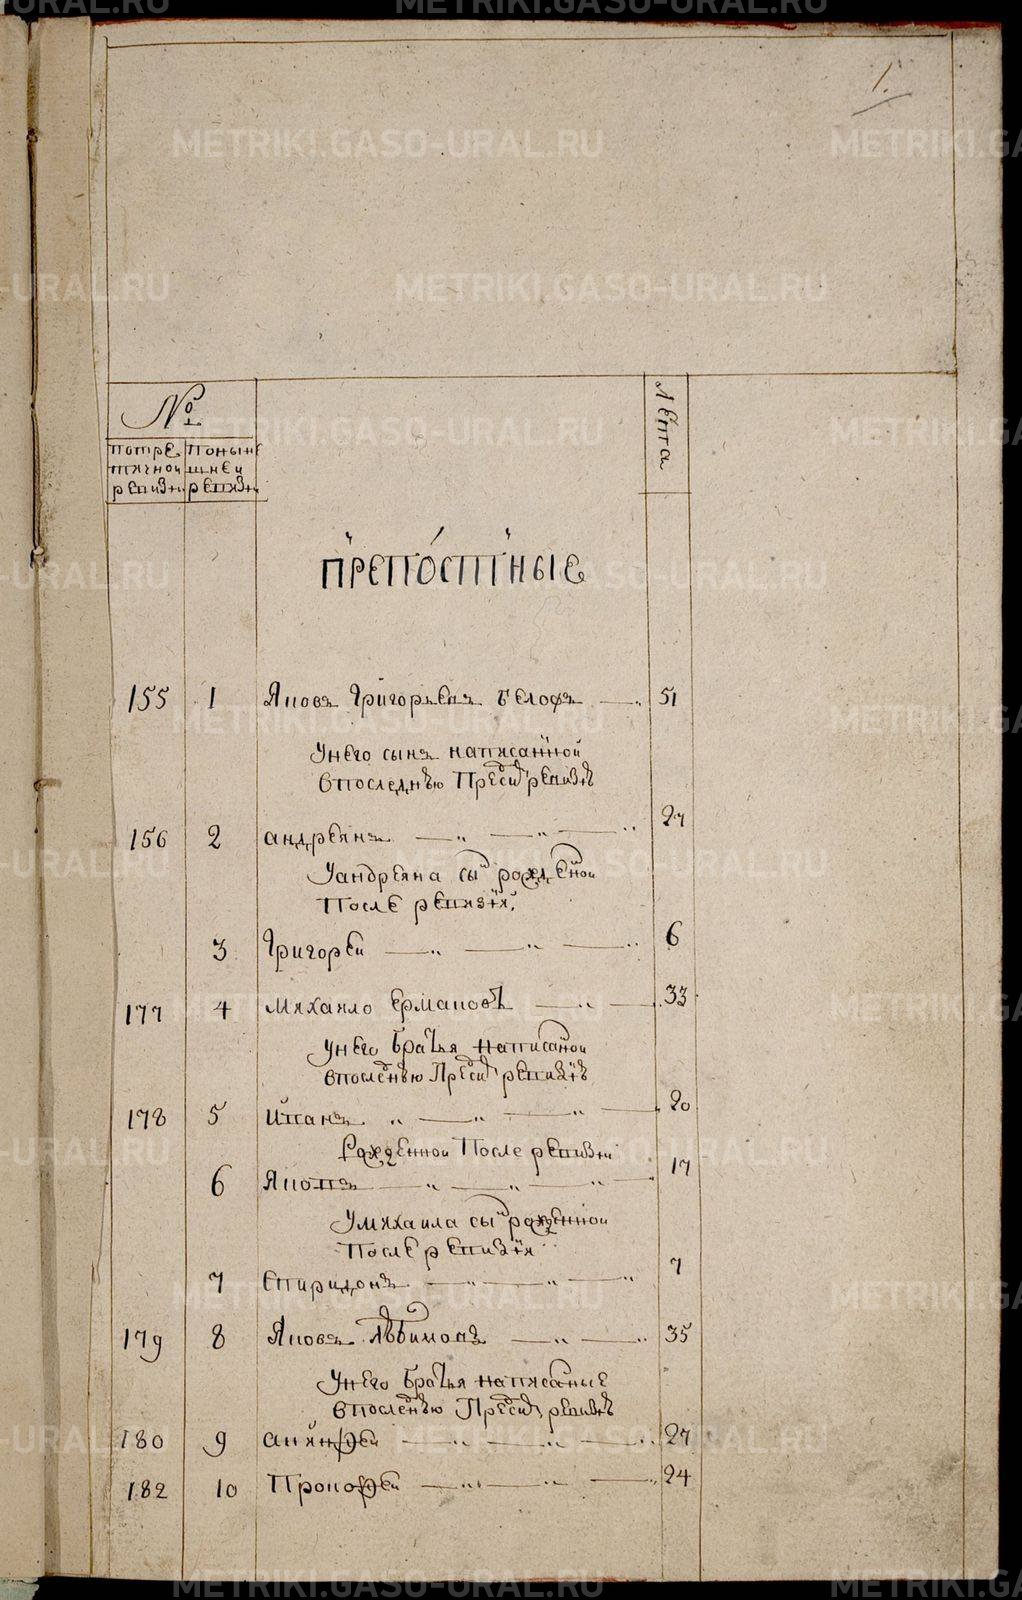 1.
№
потре
тячной
ревизи
Поныне
шней
ревизи
лѣта
крепостные
155 1 Яковъ Григорьевъ Белофъ 51
Унего сынъ написанной
впоследнѣю Пред сид ревизиѣ
156 2 андреянъ 27
Уандреяна сынъ рожденой
После ревизия
3 Григорей 6
177 4 Михаило Ермаковъ 33
унего братья написаной
впоследнѣю ревизиѣ
178 5 Иванъ 20
Рожденной После ревизи
6 Яковъ 17
Умихаила сынъ рожденной
После ревизия
7 Спиридонъ 7
179 8 Яковъ 35
Унего братья написаные
впоследнѣю ревизиѣ
180 9 аникфей 27
182 10 Прокофей 24
METRIKI.GASO-URAL.RU